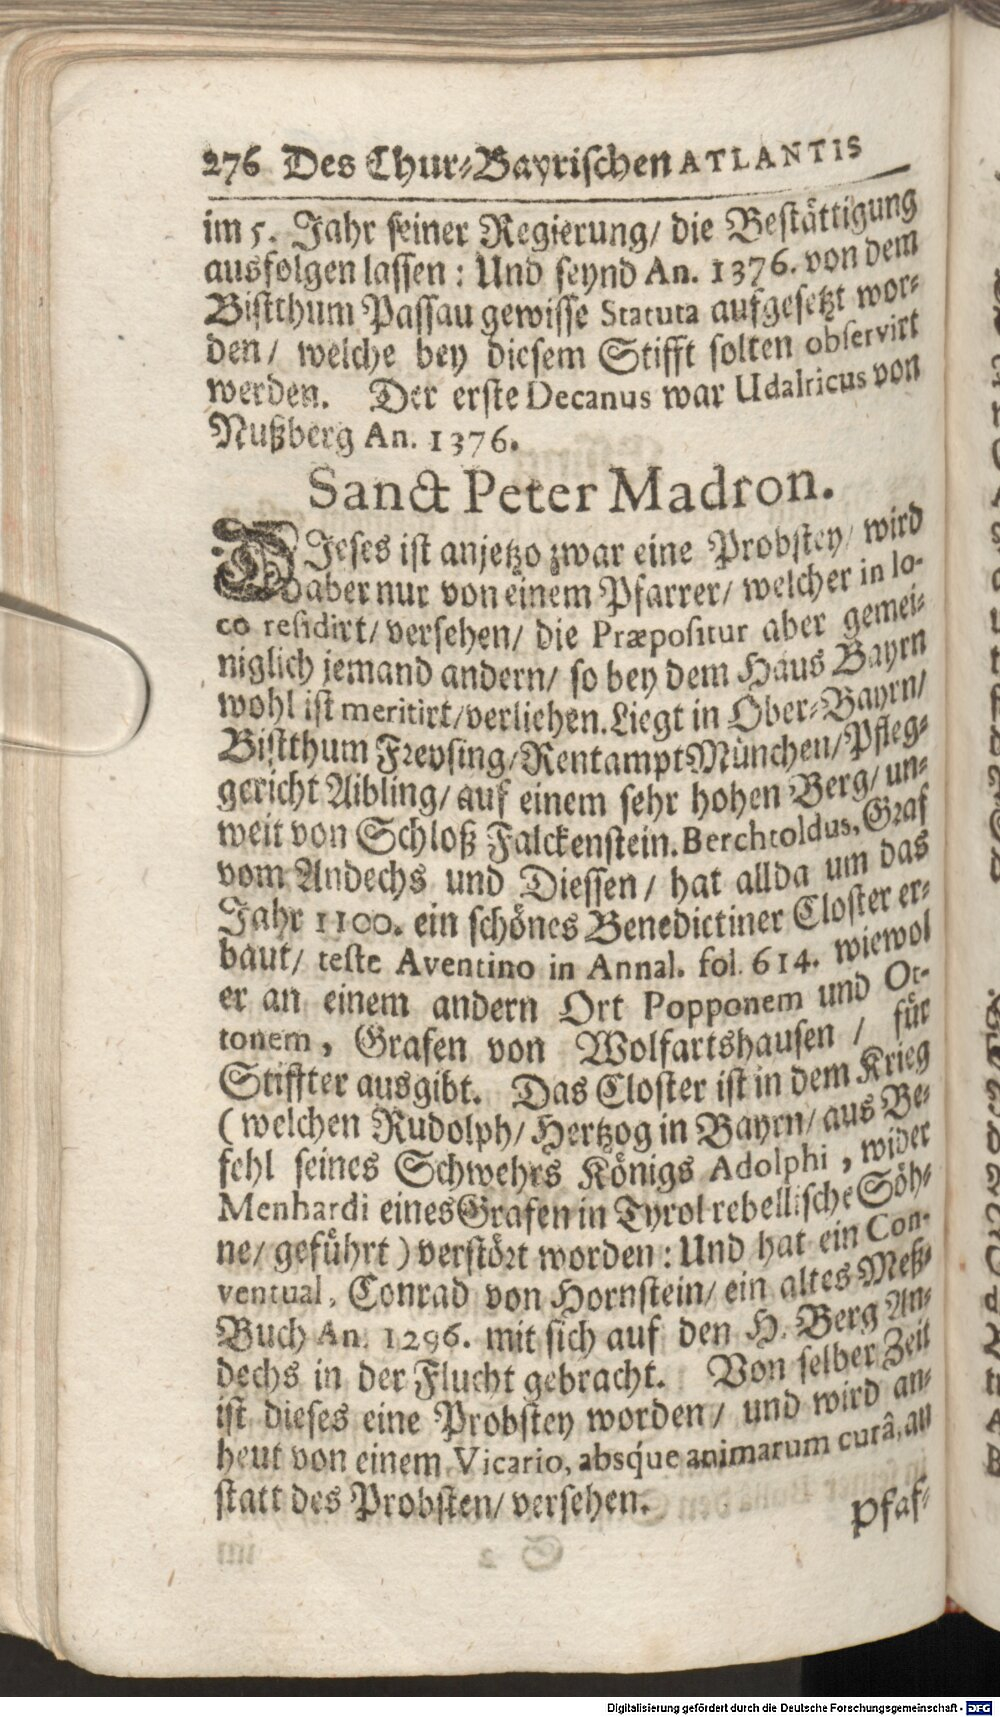 276 Des Chur-Bayrischen ATLANTIS
im 5. Jahr seiner Regierung/ die Bestättigung
ausfolgen lassen: Und seynd An. 1376. von dem
Bistthum Passau gewisse Statuta aufgesetzt wor-
den/ welche bey diesem Stifft solten observirt
werden. Der erste Decanus war Udalricus von
Nußberg An. 1376.
Sanct Peter Madron.
DIeses ist anjetzo zwar eine Probstey/ wird
aber nur von einem Pfarrer/ welcher in lo-
co residirt/ versehen/ die Præpositur aber gemei-
niglich jemand andern/ so bey dem Haus Bayrn
wohl ist meritirt/verliehen. Liegt in Ober-Bayrn/
Bistthum Freysing/ Rentampt München/ Pfleg-
gericht Aibling/ auf einem sehr hohen Berg/ un-
weit von Schloß Falckenstein. Berchtoldus, Graf
vom Andechs und Diessen/ hat allda um das
Jahr 1100. ein schönes Benedictiner Closter er-
baut/ teste Aventino in Annal. fol. 614. wiewol
er an einem andern Ort Popponem und Ot-
tonem, Grafen von Wolfartshausen / für
Stiffter ausgibt. Das Closter ist in dem Krieg
(welchen Rudolph/ Hertzog in Bayrn/ aus Be-
fehl seines Schwehrs Königs Adolphi, wider
Menhardi eines Grafen in Tyrol rebellische Söh-
ne/ geführt) verstört worden: Und hat ein Con-
ventual, Conrad von Hornstein/ ein altes Meß-
Buch An. 1296. mit sich auf den H. Berg An-
dechs in der Flucht gebracht. Von selber Zeit
ist dieses eine Probstey worden/ und wird an-
heut von einem Vicario, absque animarum curâ, an
statt des Probsten/ versehen.
Pfaf-
Digitalisierung gefördert durch die Deutsche Forschungsgemeinschaft - DFG